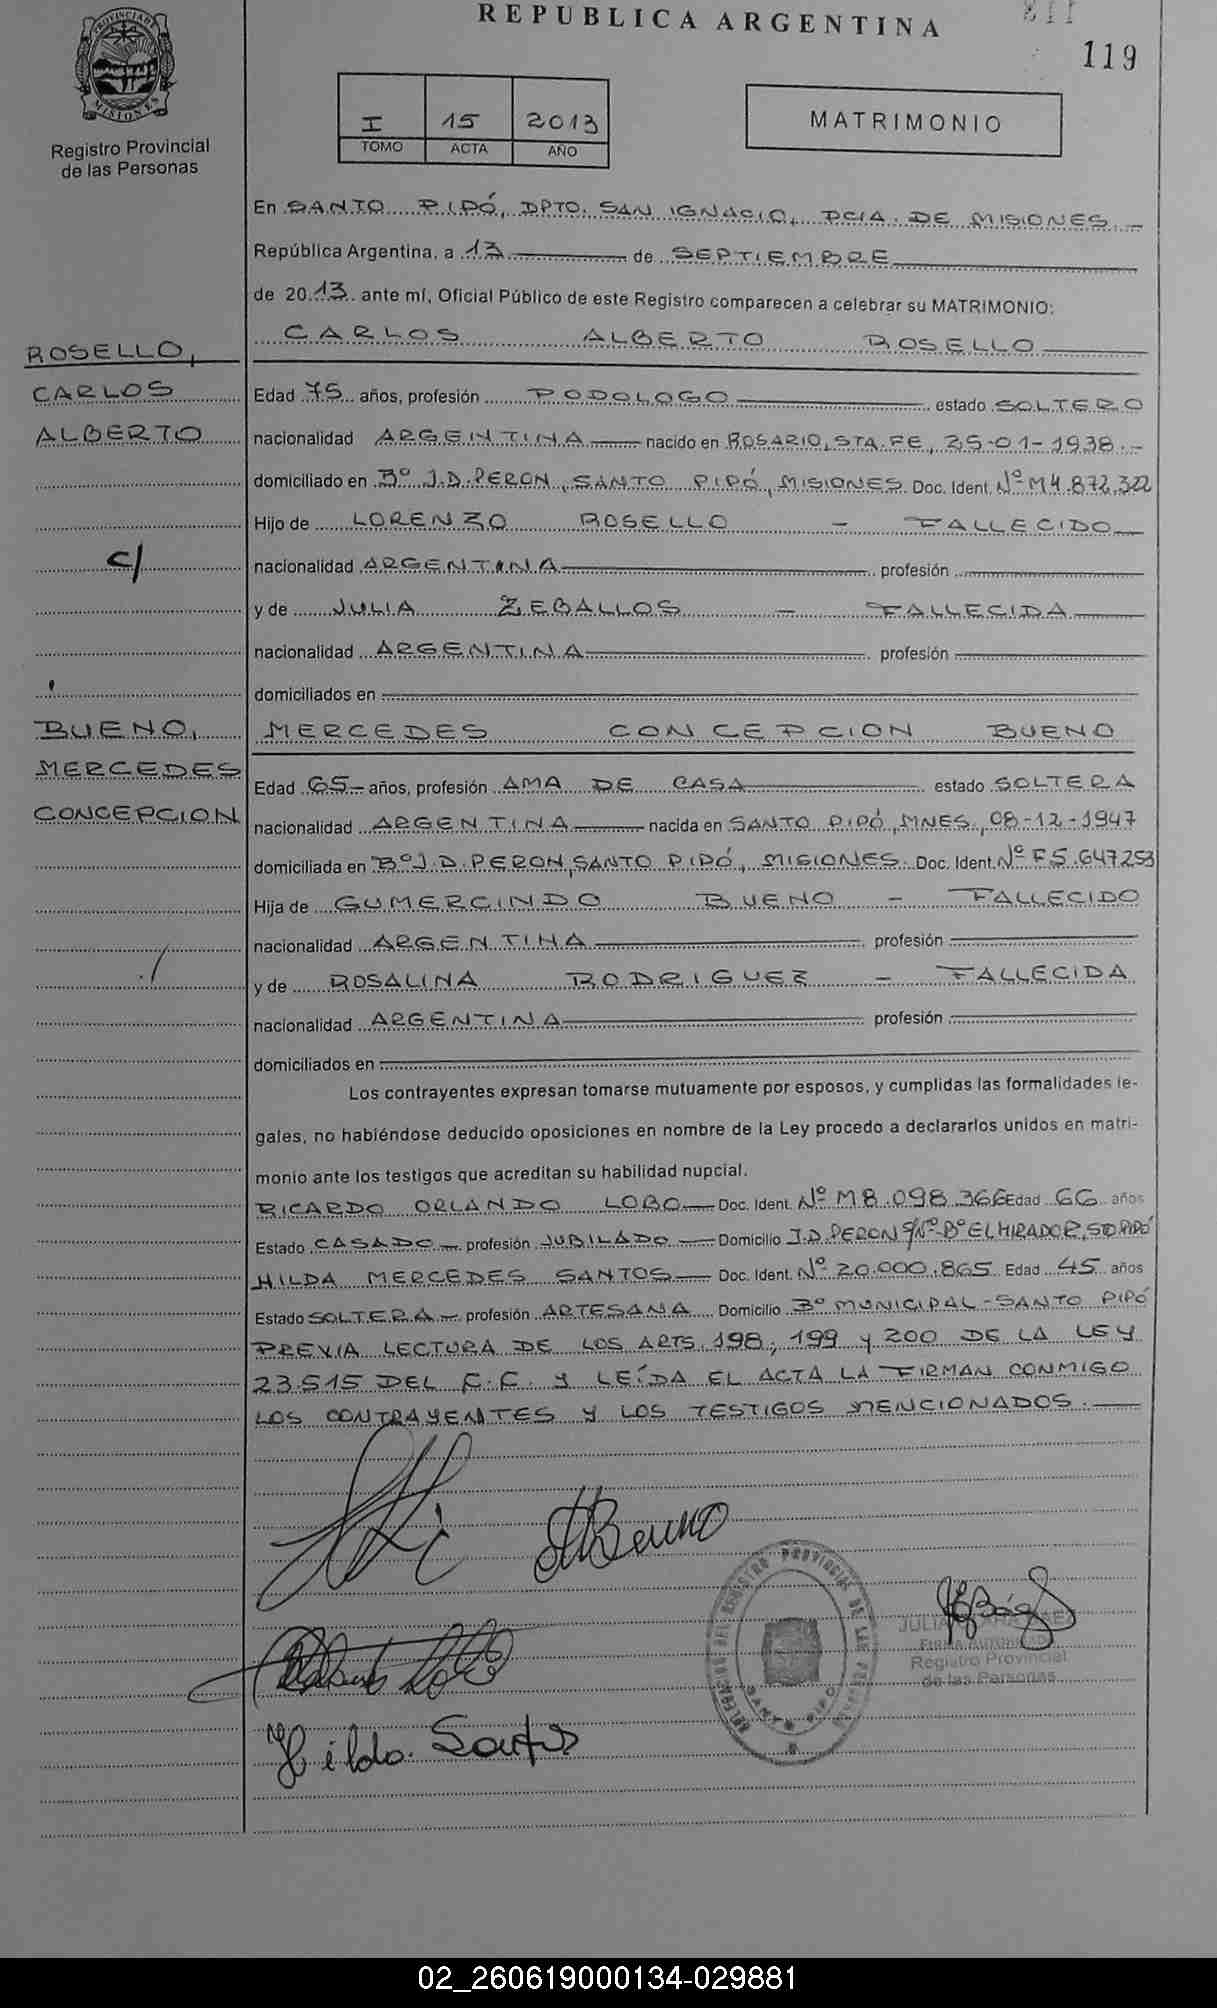 REPUBLICA ARGENTINA
119
PROVINCIA DE
MISIONES
Registro Provincial
de las Personas
I 15 2013
TOMO ACTA AÑO
MATRIMONIO
En SANTO PIPÓ, DPTO. SAN IGNACIO, PCIA. DE MISIONES.-
República Argentina, a 13 de SEPTIEMBRE
de 2013. ante mí, Oficial Público de este Registro comparecen a celebrar su MATRIMONIO:
CARLOS ALBERTO ROSELLO
ROSELLO,
CARLOS
ALBERTO
Edad 75 años, profesión PODOLOGO estado SOLTERO
nacionalidad ARGENTINA nacido en ROSARIO, STA. FE, 25-01-1938.-
domiciliado en Bº J.D. PERON, SANTO PIPÓ, MISIONES. Doc. Ident. Nº M4.872.322
Hijo de LORENZO ROSELLO - FALLECIDO
c/
nacionalidad ARGENTINA profesión
y de JULIA ZEBALLOS - FALLECIDA
nacionalidad ARGENTINA profesión
domiciliados en
BUENO,
MERCEDES
CONCEPCION
MERCEDES CONCEPCION BUENO
Edad 65 años, profesión AMA DE CASA estado SOLTERA
nacionalidad ARGENTINA nacida en SANTO PIPÓ, MNES, 08-12-1947
domiciliada en Bº J.D. PERON, SANTO PIPÓ, MISIONES. Doc. Ident. Nº F5.647253
Hija de GUMERCINDO BUENO - FALLECIDO
nacionalidad ARGENTINA profesión
y de ROSALINA RODRIGUEZ - FALLECIDA
nacionalidad ARGENTINA profesión
domiciliados en
Los contrayentes expresan tomarse mutuamente por esposos, y cumplidas las formalidades le-
gales, no habiéndose deducido oposiciones en nombre de la Ley procedo a declararlos unidos en matri-
monio ante los testigos que acreditan su habilidad nupcial.
RICARDO ORLANDO LOBO Doc. Ident. Nº M8.098.366 Edad 66 años
Estado CASADO profesión JUBILADO Domicilio J.D. PERON S/Nº-Bº EL MIRADOR, STO PIPÓ
HILDA MERCEDES SANTOS Doc. Ident. Nº 20.000.865 Edad 45 años
Estado SOLTERA profesión ARTESANA Domicilio Bº MUNICIPAL-SANTO PIPÓ
PREVIA LECTURA DE LOS ARTS. 198, 199 y 200 DE LA LEY
23515 DEL C.C. y LEÍDA EL ACTA LA FIRMAN CONMIGO
LOS CONTRAYENTES y LOS TESTIGOS MENCIONADOS.
Bueno
REGISTRO PROVINCIAL DE LAS PERSONAS
SANTO PIPO
FIRMA AUTORIZADA
Registro Provincial
de las Personas
Hilda Santos
02_260619000134-029881